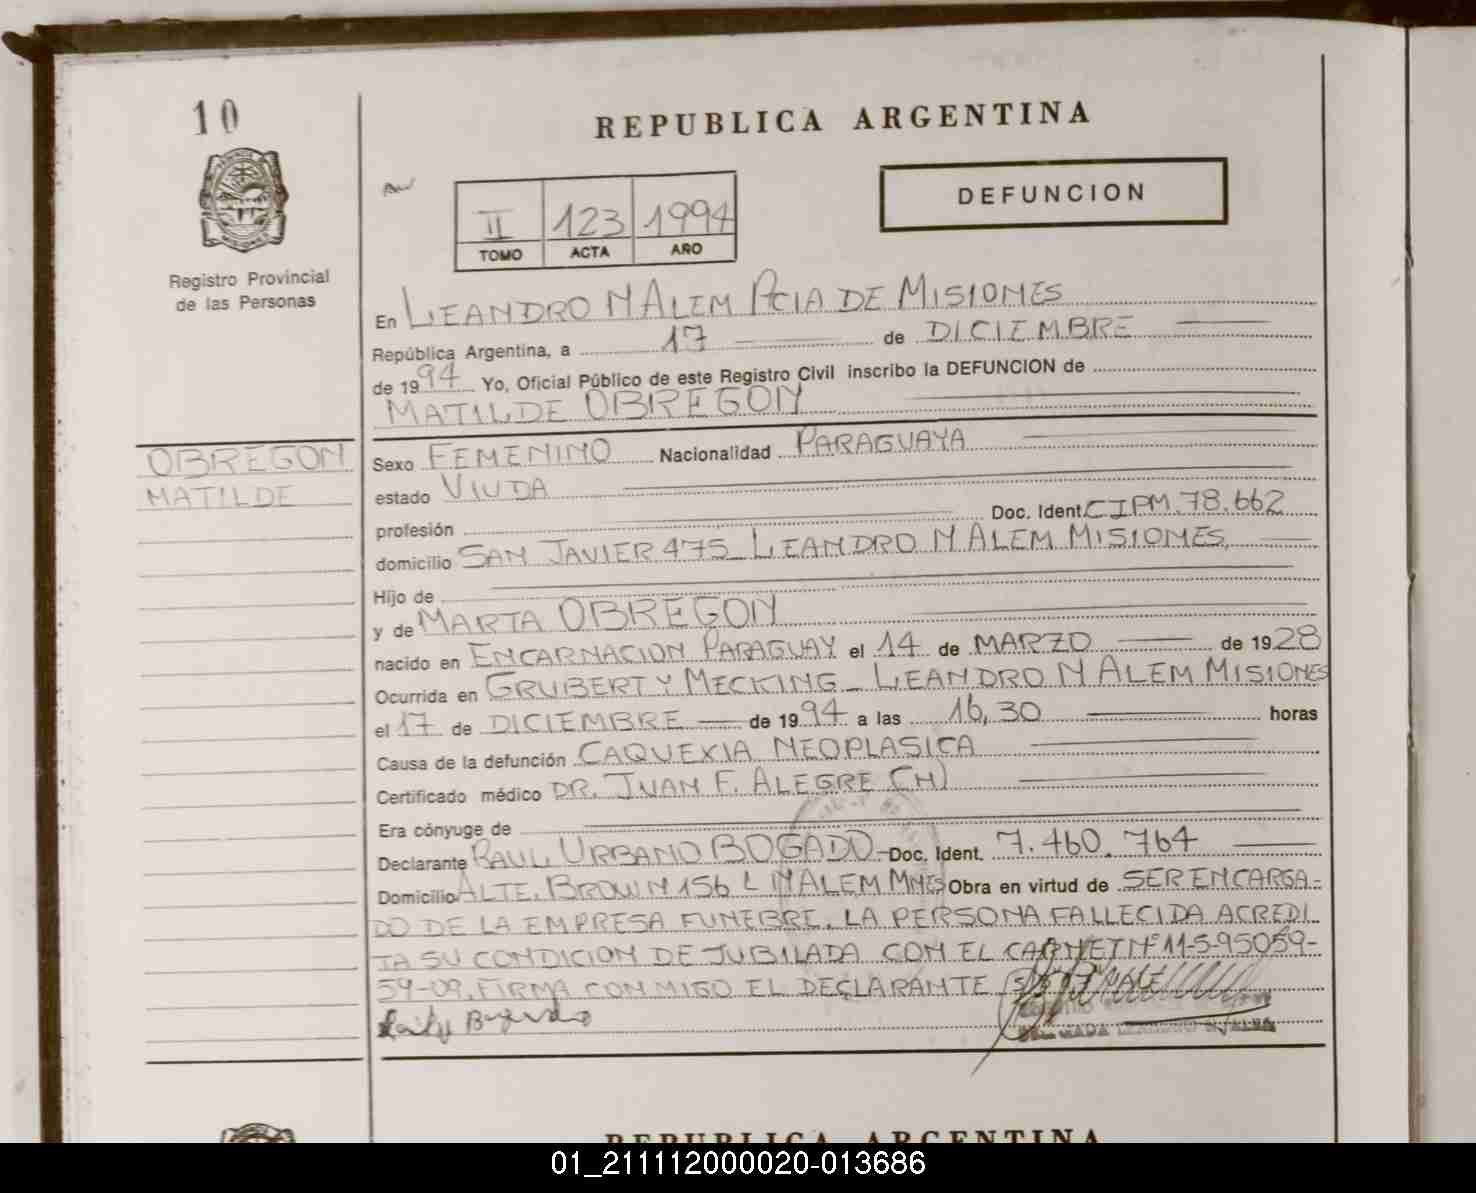 10
REPUBLICA ARGENTINA
DEFUNCION
II 123 1994
TOMO ACTA AÑO
Registro Provincial
de las Personas
En LEANDRO N ALEM PCIA DE MISIONES
República Argentina, a 17 de DICIEMBRE
de 1994 Yo, Oficial Público de este Registro Civil inscribo la DEFUNCION de
MATILDE OBREGON
OBREGON
MATILDE
Sexo FEMENINO Nacionalidad PARAGUAYA
estado VIUDA
profesión Doc. Ident. CIPM. 78.662
domicilio SAN JAVIER 475_ LEANDRO N ALEM MISIONES
Hijo de
y de MARTA OBREGON
nacido en ENCARNACION PARAGUAY el 14 de MARZO de 1928
Ocurrida en GRUBERT Y MECKING_ LEANDRO N ALEM MISIONES
el 17 de DICIEMBRE de 1994 a las 16,30 horas
Causa de la defunción CAQUEXIA NEOPLASICA
Certificado médico DR. JUAN F. ALEGRE (H)
Era cónyuge de
Declarante RAUL URBANO BOGADO.- Doc. Ident. 7.460.764
Domicilio ALTE. BROWN 156 L N ALEM MNES Obra en virtud de SER ENCARGA-
DO DE LA EMPRESA FUNEBRE. LA PERSONA FALLECIDA ACREDI_
TA SU CONDICION DE JUBILADA CON EL CARNET Nº 11-5-95059-
59-09. FIRMA CONMIGO EL DECLARANTE
REPUBLICA ARGENTINA
01_211112000020-013686